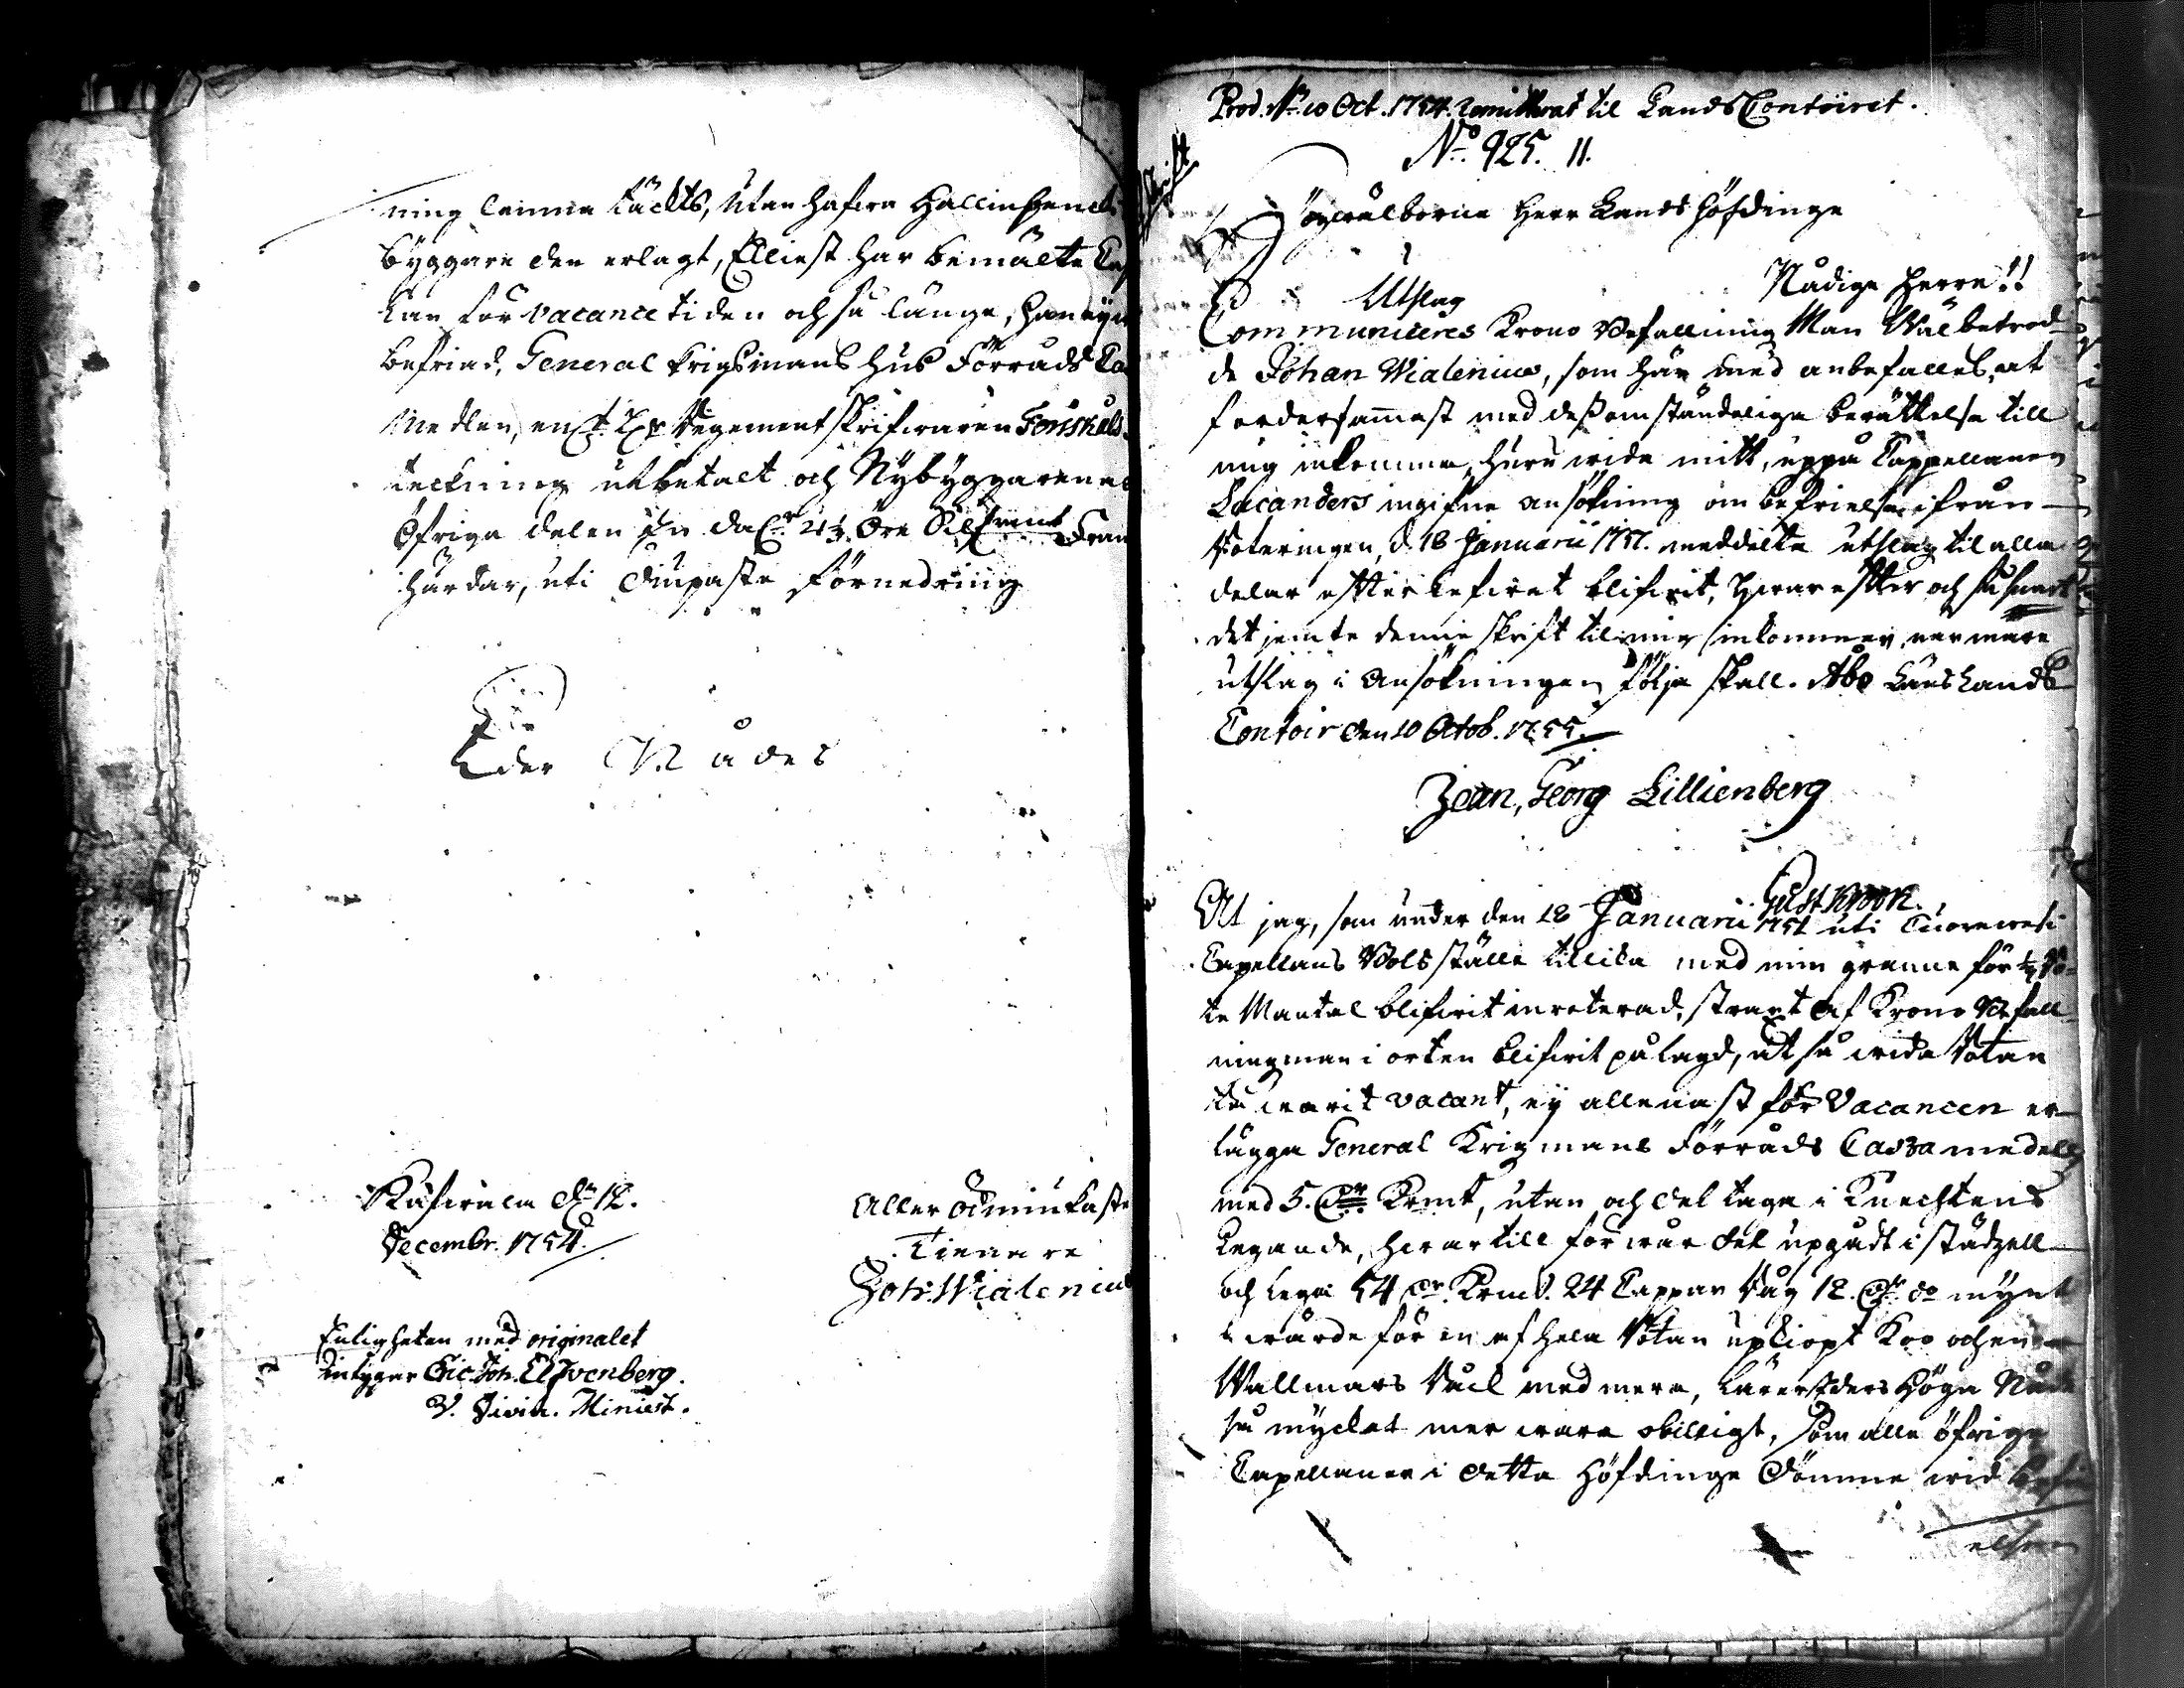 ning lemna täckts, utan hafwa Hallinsen och
byggare den erlagt, Elliest har bemälte Cap
lan för vacance tiden och så länge, han ey
befriad, General Krigsmans hus Förråds Ca
Medlen, en Regementskrifwaren Forsskåls
teckning utbetalt och Nybyggarenas
öfriga delen öre Silfwmt
härdar, uti diupaste förnedring
Eder Nådes
Räfwala d. 12.
Decembr. 1754.
Aller ödmiukaste
Tienare
Joh: Wialenius
Enligheten med originalet
intygar Eric Joh. Elfvenberg.
V. Divin. Minist.
Prod. d. 10 Oct. 1754. remitterat til LandsContoiret.
No. 925. 11.
Högwälborne Herr Landshöfdinge
Nådige Herre!!
Utslag
Communiceres Krono Befallning Man Wälbetrod
de Johan Wialenius, som här med anbefalles, at
fordersammast med des omständelige berättelse till
mig inkomma, huru wida mitt, uppå Cappellanen
Lacanders ingifne ansökning om befrielse ifrån
Roteringen, d. 18 Januarii 1757. meddelte utslag til alla
delar efterlefwat blifwit, hwarefter och så snart
det jemte denne skrift til mig inkommer, närmare
utslag i ansökningen följa skall. Åbo Läns Lands
Contoir den 10 Octob. 1755.
Jean, Georg Lillienberg
Gust Kroon.
At jag, som under den 18 Januarii 1751 uti Tuorewesi
Capellans Bolsställe tillika med min granne för
te Mantal blifwit inroterad, strax af Krono Befall
ningman i orten blifwit pålagd, at så wida Rotan
då warit vacant, ey allenast för Vacancen er
lägga General Krigmans Förråds Cassa medel
med 5. Dr Kopmt, utan och deltaga i Knechtens
Legande, hwartill för wår del upgådt i städzell
och lega 54 Dr Kpmt. 24 Cappar Råg 12. Dr do mynt
wärde för en af hela Rotan upkiöpt Koo och en
Wallmars med mera, lärer Eders Höga Nåde
så mycket mer wara obilligt, som alle öfrige
Capellaner i detta Höfdinge Dömme wid
elsen